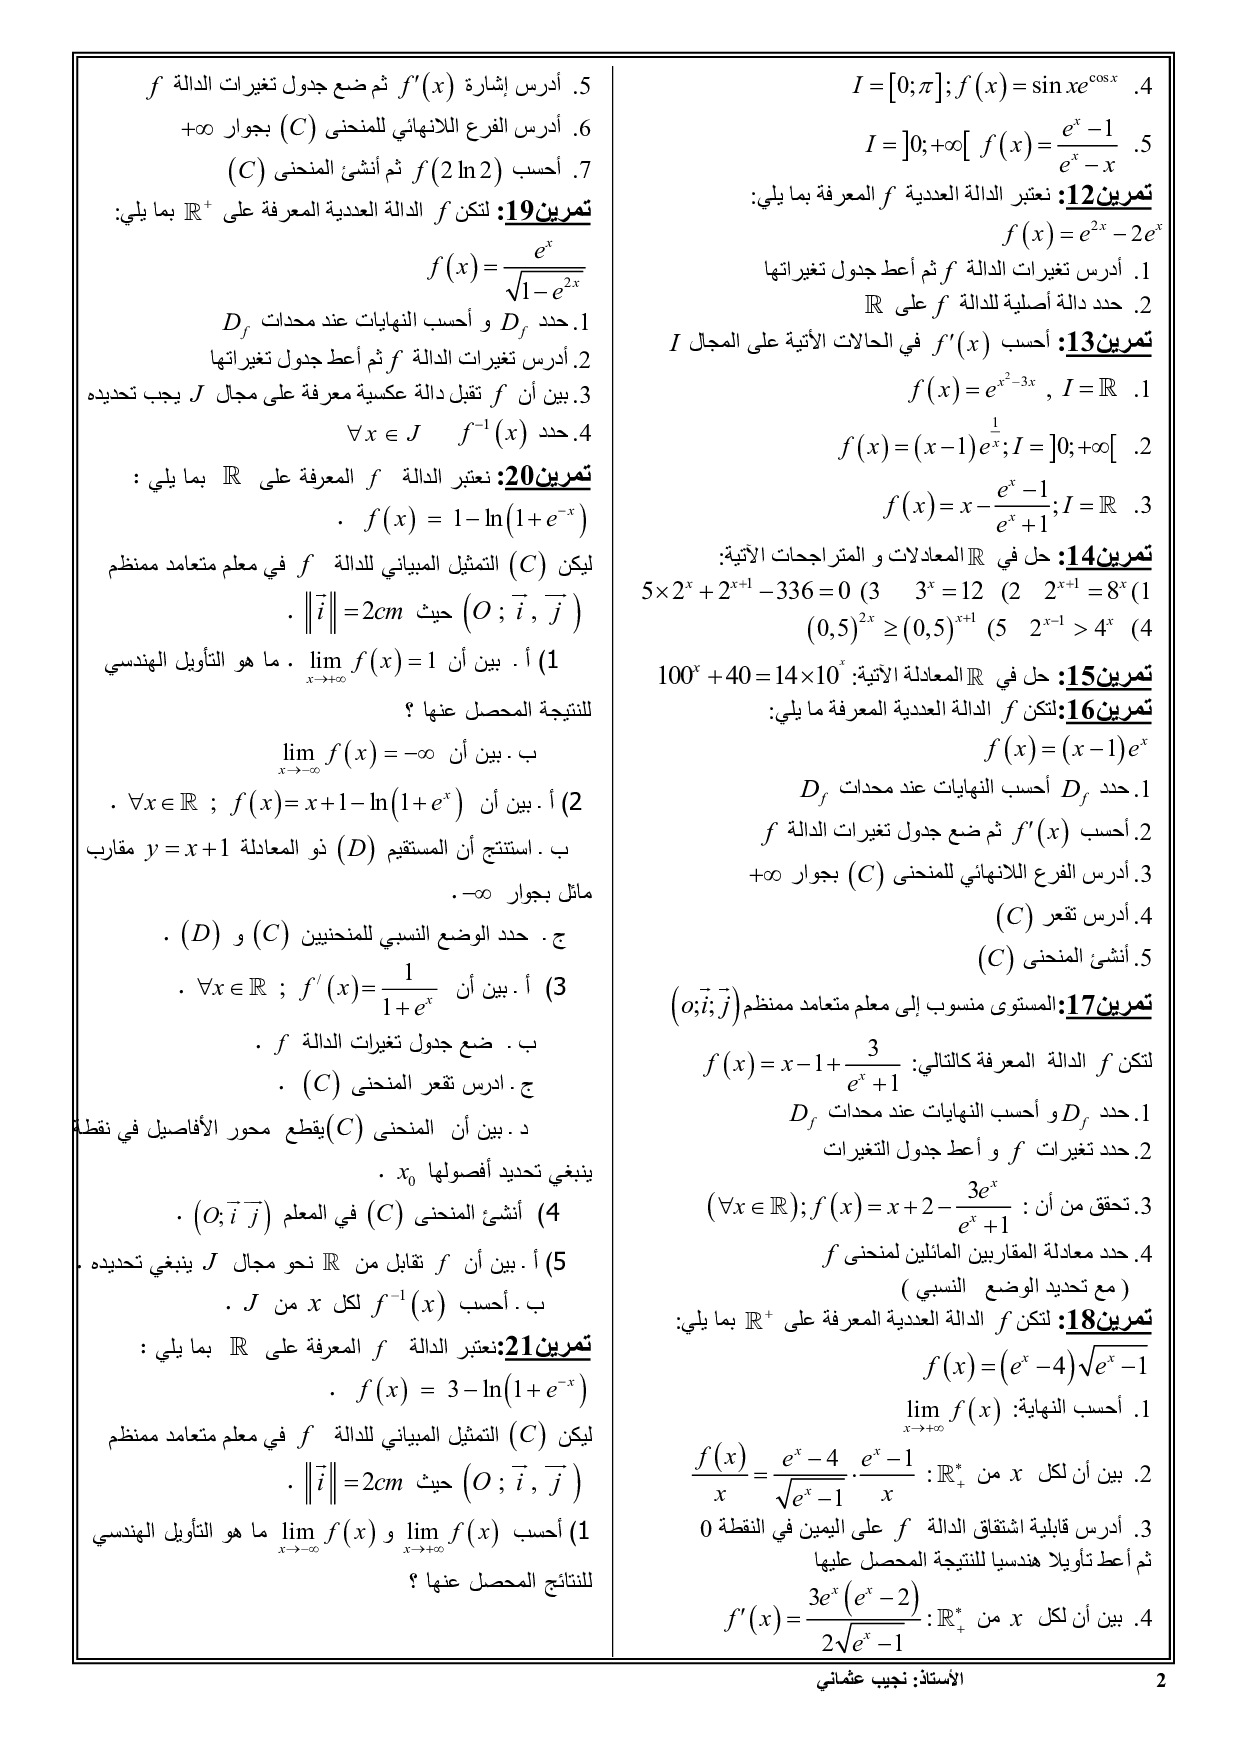 4. I = [0;π] ; f(x) = sin xe^{cos x}
5. I = ]0;+∞[ f(x) = (e^x − 1)/(e^x − x)
تمرين12: نعتبر الدالة العددية f المعرفة بما يلي:
f(x) = e^{2x} − 2e^x
1. أدرس تغيرات الدالة f ثم أعط جدول تغيراتها
2. حدد دالة أصلية للدالة f على ℝ
تمرين13: أحسب f′(x) في الحالات الأتية على المجال I
1. f(x) = e^{x²−3x} , I = ℝ
2. f(x) = (x−1)e^{1/x} ; I = ]0;+∞[
3. f(x) = x − (e^x − 1)/(e^x + 1) ; I = ℝ
تمرين14: حل في ℝ المعادلات و المتراجحات الآتية:
1) 2^{x+1} = 8^x 2) 3^x = 12 3) 5×2^x + 2^{x+1} − 336 = 0
4) 2^{x−1} > 4^x 5) (0,5)^{2x} ≥ (0,5)^{x+1}
تمرين15: حل في ℝ المعادلة الآتية: 100^x + 40 = 14×10^x
تمرين16:لتكن f الدالة العددية المعرفة ما يلي:
f(x) = (x−1)e^x
1. حدد D_f أحسب النهايات عند محدات D_f
2. أحسب f′(x) ثم ضع جدول تغيرات الدالة f
3. أدرس الفرع اللانهائي للمنحنى (C) بجوار +∞
4. أدرس تقعر (C)
5. أنشئ المنحنى (C)
تمرين17:المستوى منسوب إلى معلم متعامد ممنظم (o;i⃗;j⃗)
لتكن f الدالة المعرفة كالتالي: f(x) = x − 1 + 3/(e^x + 1)
1. حدد D_f و أحسب النهايات عند محدات D_f
2. حدد تغيرات f و أعط جدول التغيرات
3. تحقق من أن : (∀x∈ℝ); f(x) = x + 2 − 3e^x/(e^x + 1)
4. حدد معادلة المقاربين المائلين لمنحنى f
( مع تحديد الوضع النسبي )
تمرين18: لتكن f الدالة العددية المعرفة على ℝ⁺ بما يلي:
f(x) = (e^x − 4)√(e^x − 1)
1. أحسب النهاية: lim_{x→+∞} f(x)
2. بين أن لكل x من ℝ₊* : f(x)/x = (e^x − 4)/√(e^x − 1) · (e^x − 1)/x
3. أدرس قابلية اشتقاق الدالة f على اليمين في النقطة 0
ثم أعط تأويلا هندسيا للنتيجة المحصل عليها
4. بين أن لكل x من ℝ₊* : f′(x) = 3e^x(e^x − 2)/(2√(e^x − 1))
5. أدرس إشارة f′(x) ثم ضع جدول تغيرات الدالة f
6. أدرس الفرع اللانهائي للمنحنى (C) بجوار +∞
7. أحسب f(2 ln 2) ثم أنشئ المنحنى (C)
تمرين19: لتكن f الدالة العددية المعرفة على ℝ⁺ بما يلي:
f(x) = e^x/√(1 − e^{2x})
1. حدد D_f و أحسب النهايات عند محدات D_f
2. أدرس تغيرات الدالة f ثم أعط جدول تغيراتها
3. بين أن f تقبل دالة عكسية معرفة على مجال J يجب تحديده
4. حدد f⁻¹(x) ∀x ∈ J
تمرين20: نعتبر الدالة f المعرفة على ℝ بما يلي :
f(x) = 1 − ln(1 + e^{−x}) .
ليكن (C) التمثيل المبياني للدالة f في معلم متعامد ممنظم
(O ; i⃗ , j⃗) حيث ‖i⃗‖ = 2cm .
1) أ . بين أن lim_{x→+∞} f(x) = 1 . ما هو التأويل الهندسي
للنتيجة المحصل عنها ؟
ب . بين أن lim_{x→−∞} f(x) = −∞
2) أ . بين أن ∀x∈ℝ ; f(x) = x + 1 − ln(1 + e^x) .
ب . استنتج أن المستقيم (D) ذو المعادلة y = x + 1 مقارب
مائل بجوار −∞ .
ج . حدد الوضع النسبي للمنحنيين (C) و (D) .
3) أ . بين أن ∀x∈ℝ ; f^/(x) = 1/(1 + e^x) .
ب . ضع جدول تغيرات الدالة f .
ج . ادرس تقعر المنحنى (C) .
د . بين أن المنحنى (C) يقطع محور الأفاصيل في نقطة
ينبغي تحديد أفصولها x₀ .
4) أنشئ المنحنى (C) في المعلم (O; i⃗ j⃗) .
5) أ . بين أن f تقابل من ℝ نحو مجال J ينبغي تحديده .
ب . أحسب f⁻¹(x) لكل x من J .
تمرين21:نعتبر الدالة f المعرفة على ℝ بما يلي :
f(x) = 3 − ln(1 + e^{−x}) .
ليكن (C) التمثيل المبياني للدالة f في معلم متعامد ممنظم
(O ; i⃗ , j⃗) حيث ‖i⃗‖ = 2cm .
1) أحسب lim_{x→+∞} f(x) و lim_{x→−∞} f(x) ما هو التأويل الهندسي
للنتائج المحصل عنها ؟
2 الأستاذ: نجيب عثماني